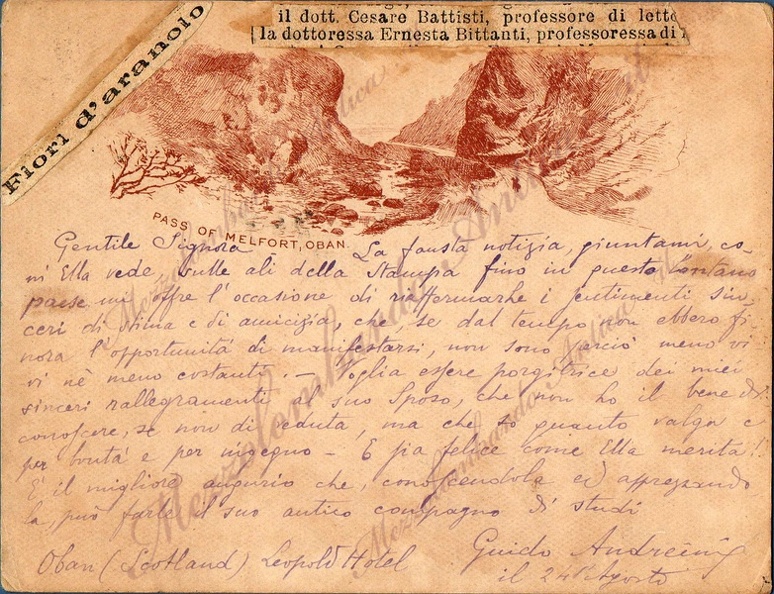 Fiori d'arancio
il dott. Cesare Battisti, professore di lette
la dottoressa Ernesta Bittanti, professoressa di
PASS OF MELFORT, OBAN.
Gentile Signora La fausta notizia, giuntami, co-
m' Ella vede, sulle ali della Stampa fino in questo lontano
paese mi offre l'occasione di riaffermarle i sentimenti sin-
ceri di stima e di amicizia, che, se dal tempo non ebbero fi-
nora l'opportunità di manifestarsi, non sono perciò meno vi
vi nè meno costanti. — Voglia essere porgitrice dei miei
sinceri rallegramenti al suo Sposo, che non ho il bene di
conoscere, se non di veduta, ma che so quanto valga e
per bontà e per ingegno — E sia felice come Ella merita!
E' il migliore augurio che, conoscendola ed apprezzando
la, può farle il suo antico compagno di studi
Oban (Scotland) Leopold Hotel
Guido Andreini
il 24 Agosto
Mezzolombardo Antica